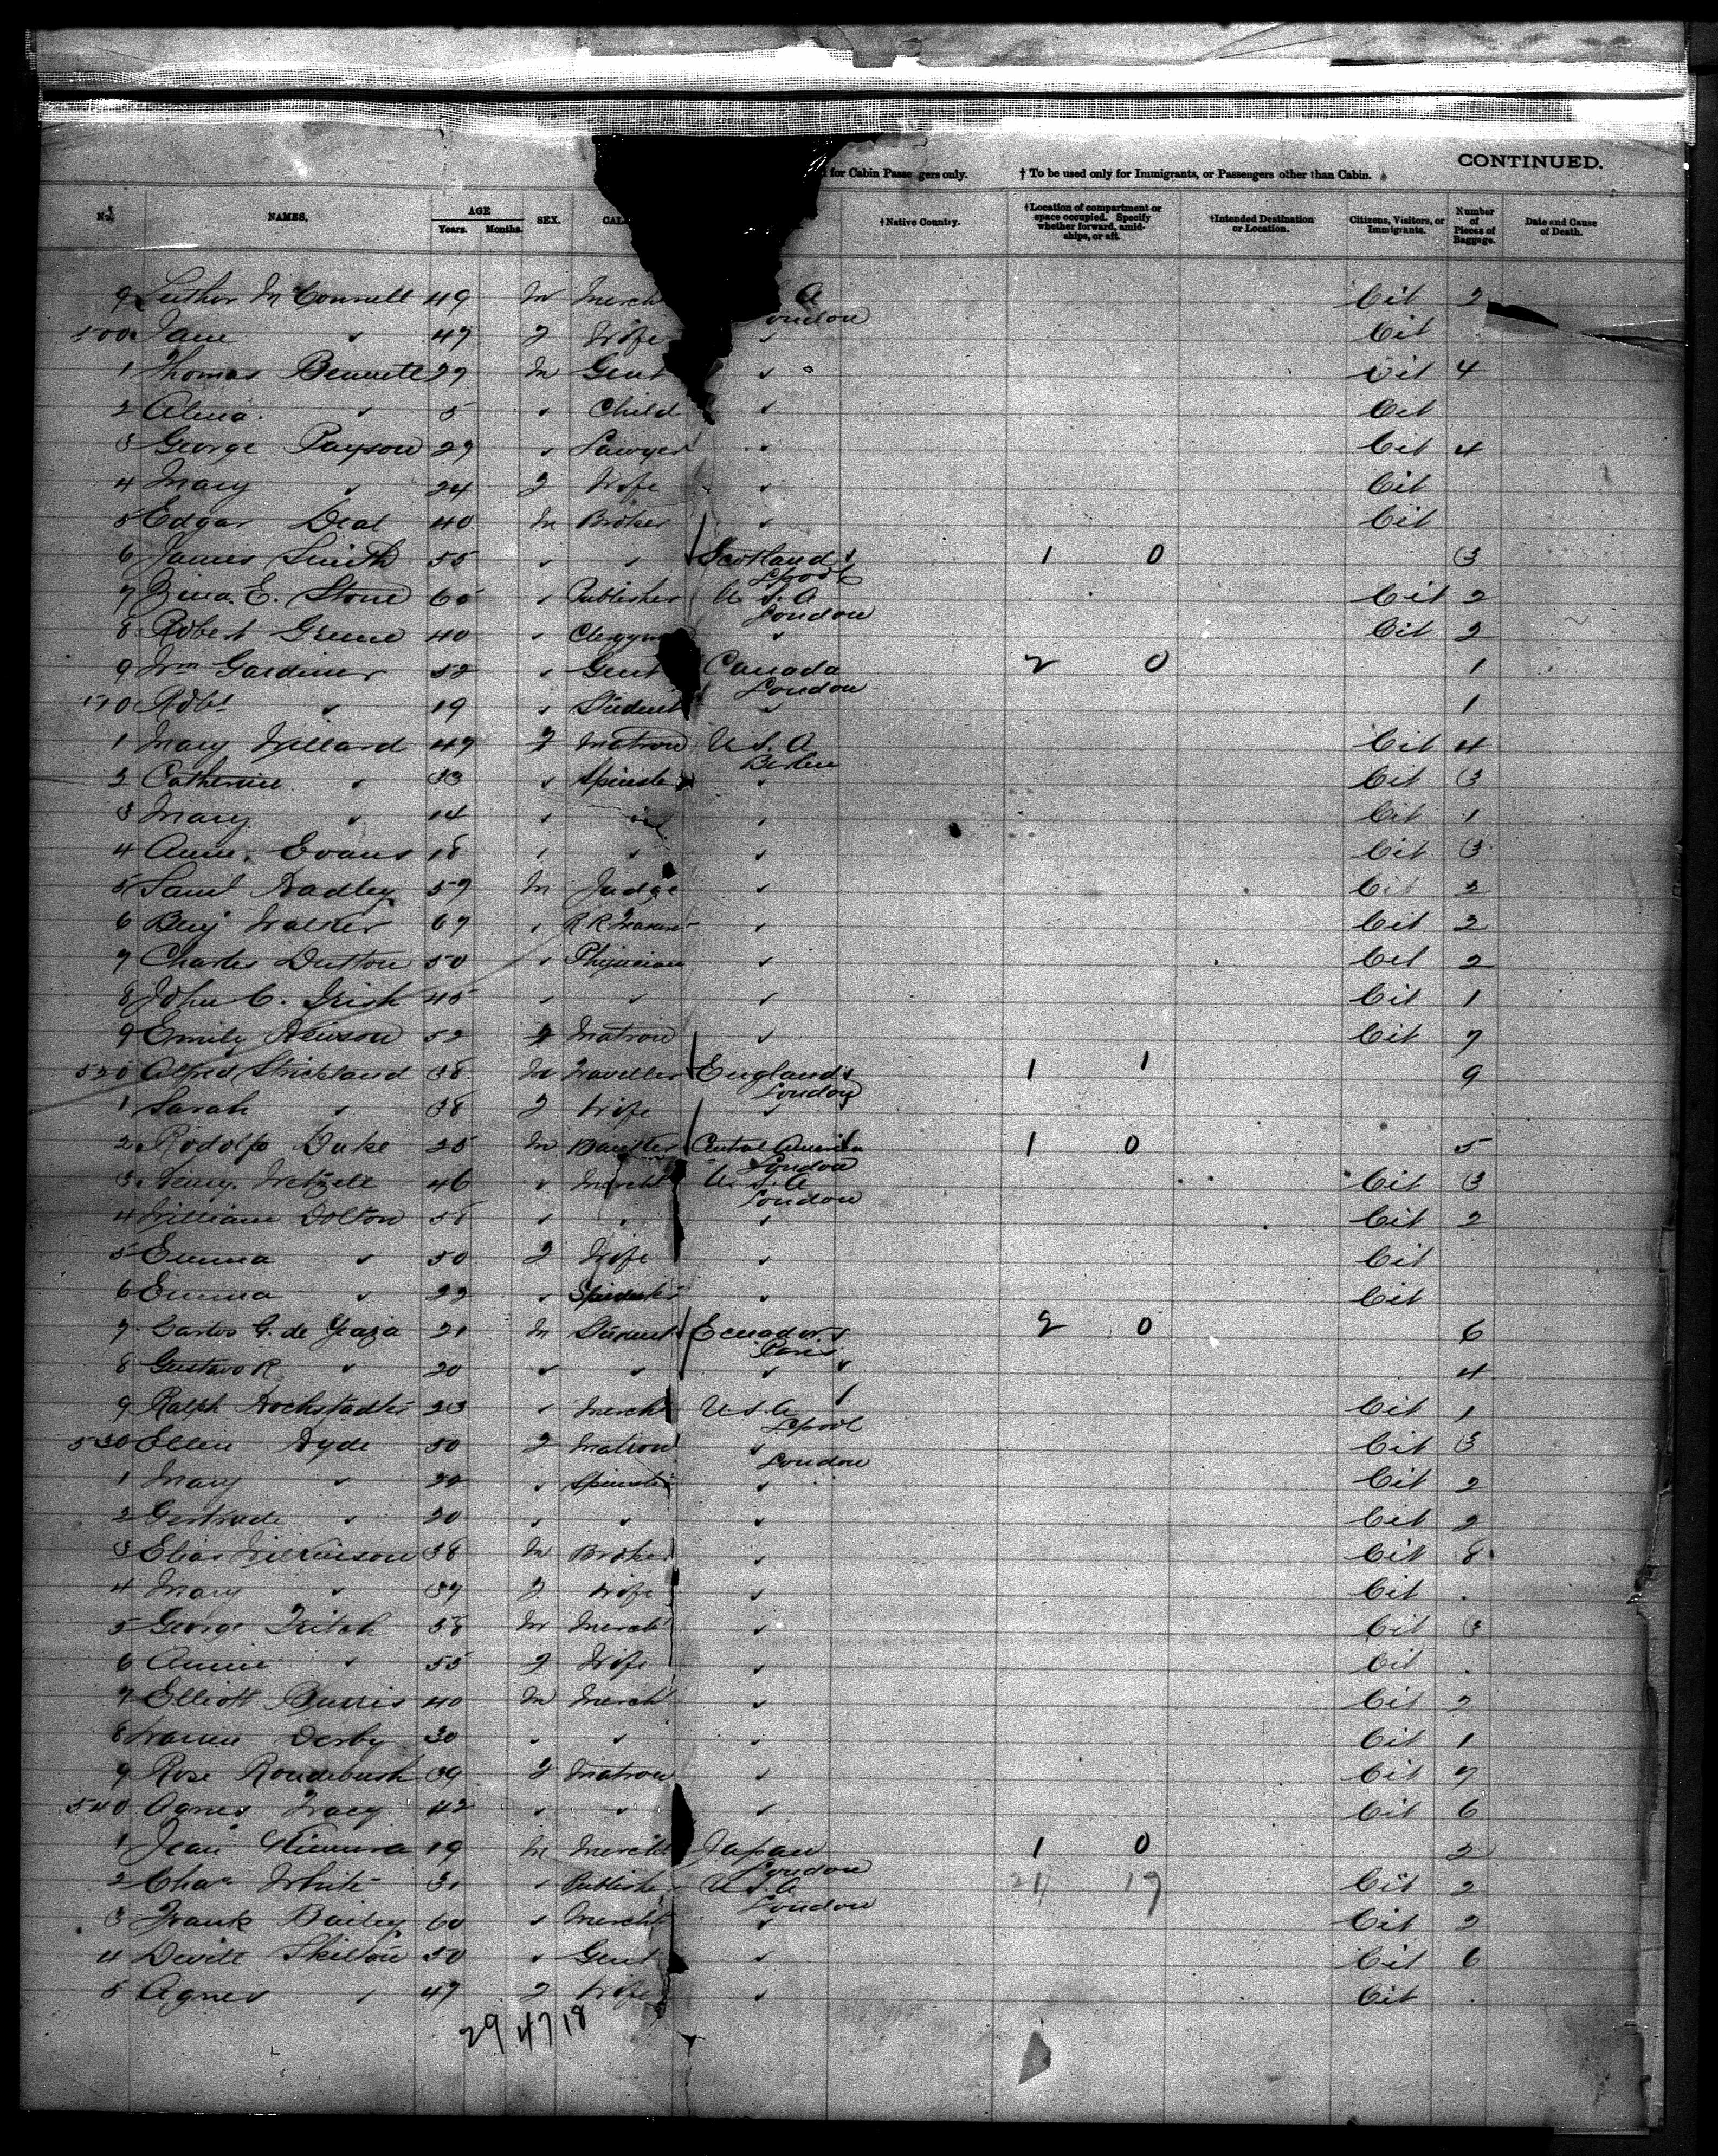 CONTINUED.
for Cabin Passe gers only. † To be used only for Immigrants, or Passengers other than Cabin.
No. NAMES. AGE Years. Months. SEX. CAL †Native Country. †Location of compartment or space occupied. Specify whether forward, amidships, or aft. †Intended Destination or Location. Citizens, Visitors, or Immigrants. Number of Pieces of Baggage. Date and Cause of Death.
9 Luther McConnell 49 M Merch A Cit 2
London
500 Jane " 47 F Wife " Cit
1 Thomas Bennett 29 M Gent " Cit 4
2 Alma " 5 " Child " Cit
3 George Payson 29 " Lawyer " Cit 4
4 Mary " 24 F Wife " Cit
5 Edgar Deal 40 M Broker " Cit
6 James Smith 55 " " Scotland 1 0 3
Lpool
7 E. Stone 60 " Publisher U.S.A Cit 2
London
8 Robert Greene 40 " Clergym " Cit 2
9 Wm Gardiner 52 " Gent Canada 2 0 1
London
510 Robt " 19 " Student " 1
1 Mary Willard 47 F Matron U.S.A Cit 4
Berlin
2 Catherine " 33 " Spinster " Cit 3
3 Mary " 14 " " Cit 1
4 Anne Evans 18 " " " Cit 3
5 Saml Hadley 57 M Judge " Cit 2
6 Benj Walker 67 " R R " Cit 2
7 Charles Dutton 50 " Physician " Cit 2
8 John C. Irish 45 " " " Cit 1
9 Emily Henson 52 F Matron " Cit 7
520 Alfred Strickland 38 M Traveller England 1 1 9
London
1 Sarah " 38 F Wife "
2 Rodolfo Duke 25 M Central America 1 0 5
London
3 Henry Wetzell 46 " Mercht U.S.A Cit 3
London
4 William Dolton 58 " " " Cit 2
5 Emma " 50 F Wife " Cit
6 Emma " 22 " Spinster " Cit
7 Carlos G. de Ycaza 21 M Student Ecuador 2 0 6
Paris
8 Gustavo R " 20 " " " 4
9 Ralph Hochstadter 23 " Merch U.S.A Cit 1
Lpool
530 Ellen Hyde 50 F Matron " Cit 3
London
1 Mary " 22 " Spinster " Cit 2
2 Gertrude " 20 " " " Cit 2
3 Elias Wilkinson 38 M Broker " Cit 8
4 Mary " 37 F Wife " Cit
5 George Tritch 58 M Mercht " Cit 3
6 Annie " 55 F Wife " Cit
7 Elliott Burris 40 M Mercht " Cit 2
8 Derby 30 " " " Cit 1
9 Rose Roudebush 39 F Matron " Cit 7
540 Agnes Tracy 42 " " " Cit 6
1 Jean 19 M Mercht Japan 1 0 2
London
2 Chas White 31 " Publisher U.S.A 21 19 Cit 2
London
3 Frank Bailey 60 " Mercht " Cit 2
4 Dewitt Skilton 50 " Gent " Cit 6
5 Agnes " 47 F Wife " Cit
29 47 18